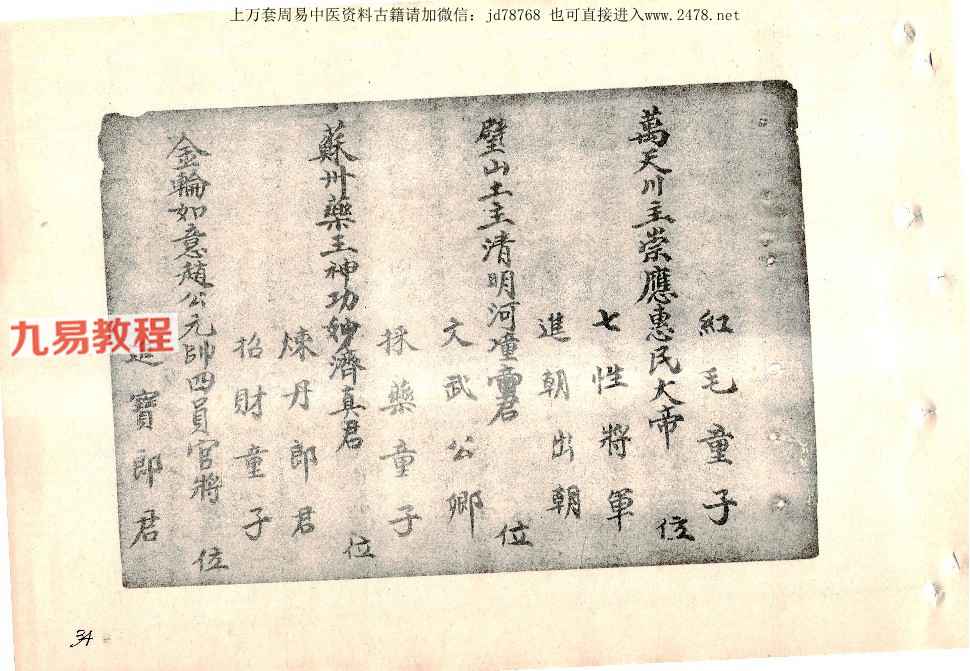 上万套周易中医资料古籍请加微信：jd78768 也可直接进入www.2478.net
紅毛童子
萬天川主崇應惠民大帝 位
七性將軍
進朝出朝
璧山土主清明河潼君 位
文武公卿
採藥童子
蘇州藥王神功妙濟真君 位
煉丹郎君
招財童子
金輪如意趙公元帥四員官將 位
寶郎君
九易教程
34